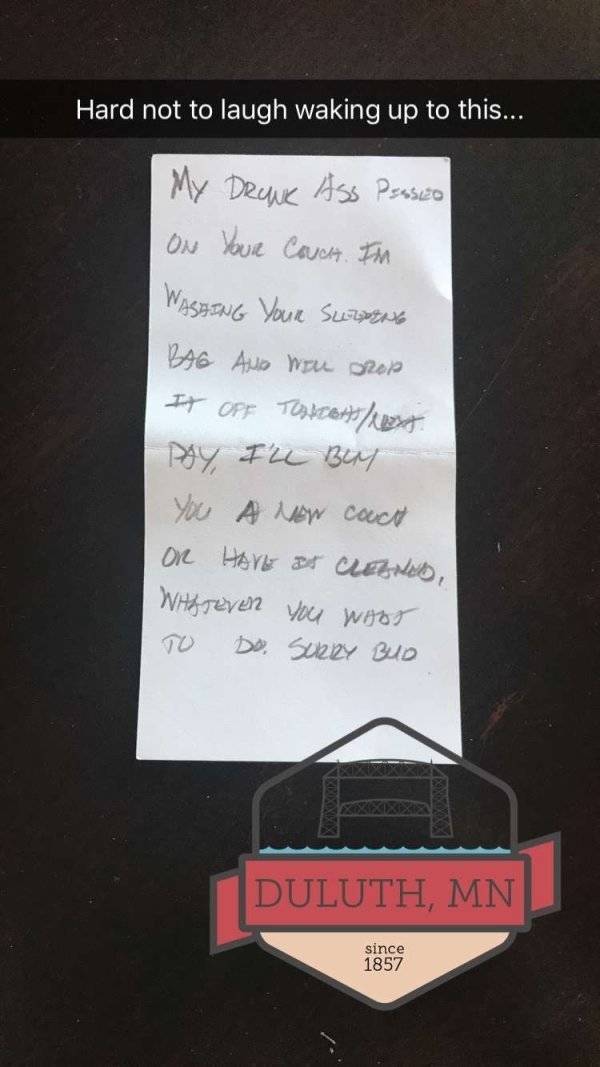 Hard not to laugh waking up to this...
MY DRUNK ASS PISSED
ON YOUR COUCH. IM
WASHING YOUR SLEEPING
BAG AND WILL DROP
IT OFF TONIGHT/NEXT
DAY, I'LL BUY
YOU A NEW COUCH
OR HAVE IT CLEANED,
WHATEVER YOU WANT
TO DO. SORRY BUD
DULUTH, MN
since
1857